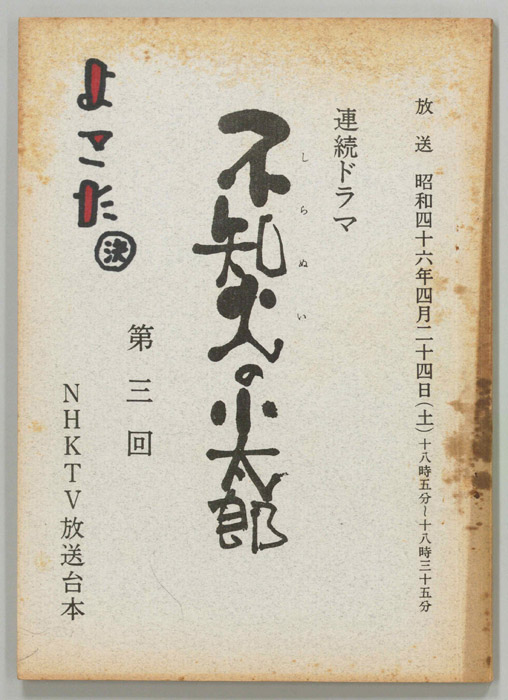 放送 昭和四十六年四月二十四日(土)十八時五分~十八時三十五分
連続ドラマ
しらぬい
不知火の小太郎
第三回
NHKTV放送台本
よこた
決